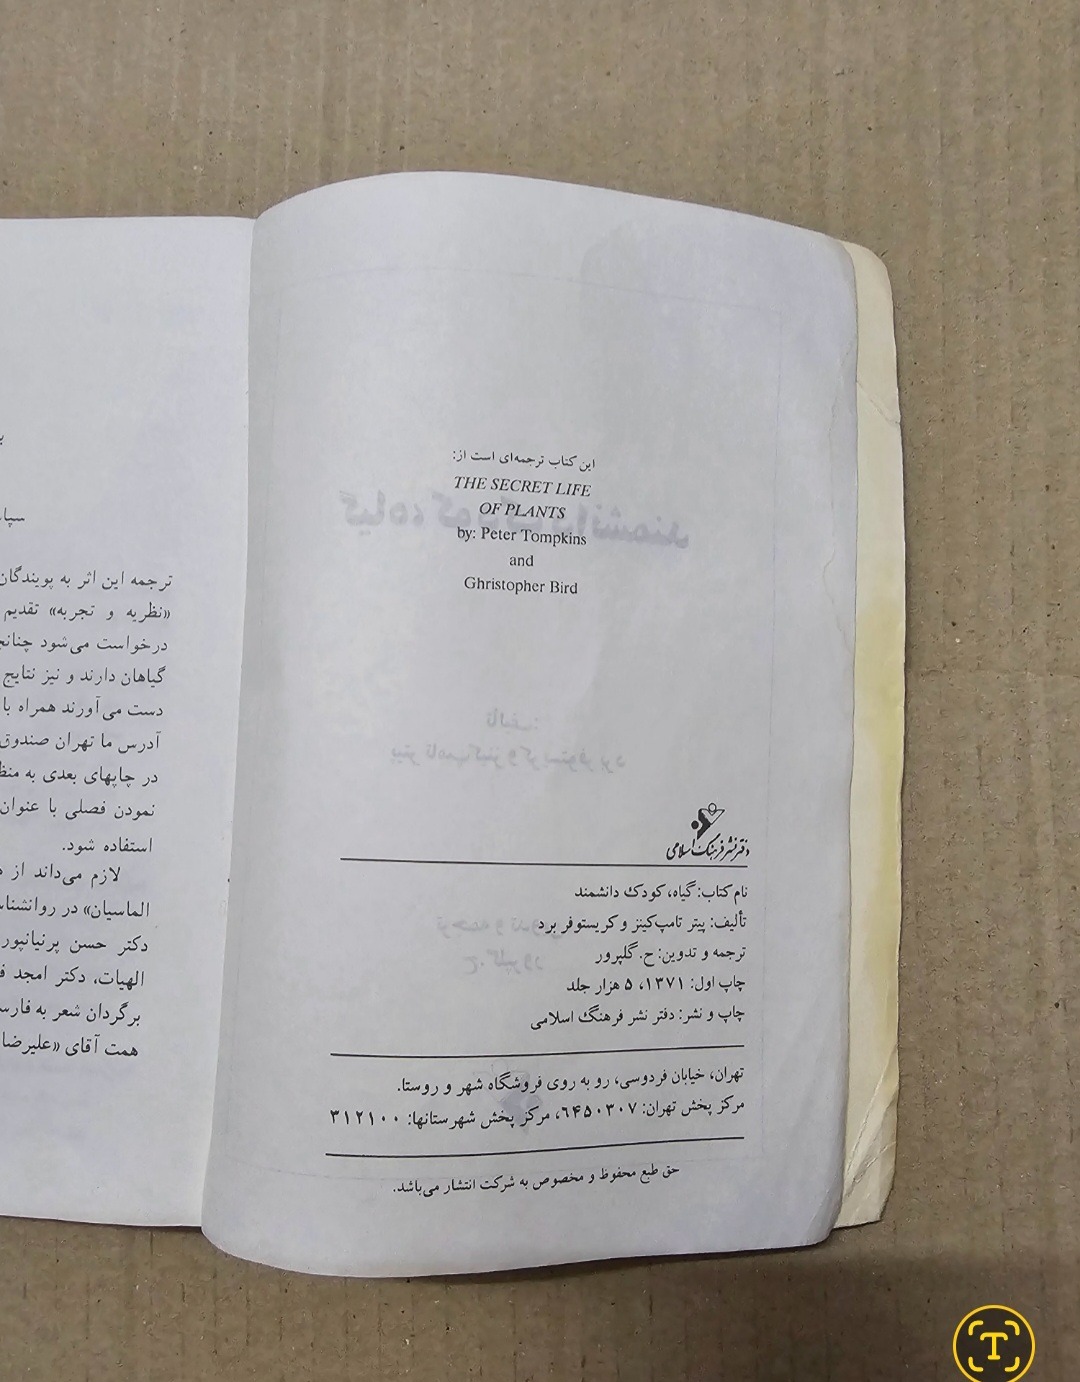 این کتاب ترجمه‌ای است از:
THE SECRET LIFE
OF PLANTS
by: Peter Tompkins
and
Ghristopher Bird
دفتر نشر فرهنگ اسلامی
نام کتاب: گیاه، کودک دانشمند
تألیف: پیتر تامپ‌کینز و کریستوفر برد
ترجمه و تدوین: ح. گلپرور
چاپ اول: ۱۳۷۱، ۵ هزار جلد
چاپ و نشر: دفتر نشر فرهنگ اسلامی
تهران، خیابان فردوسی، رو به روی فروشگاه شهر و روستا.
مرکز پخش تهران: ۶۴۵۰۳۰۷، مرکز پخش شهرستانها: ۳۱۲۱۰۰
حق طبع محفوظ و مخصوص به شرکت انتشار می‌باشد.
ترجمه این اثر به پویندگان
«نظریه و تجربه» تقدیم
درخواست می‌شود
گیاهان دارند و نیز نتایج
دست می‌آورند همراه با
آدرس ما تهران صندوق
در چاپهای بعدی به
نمودن فصلی با عنوان
استفاده شود.
لازم می‌داند از
الماسیان» در
دکتر حسن پرنیانپور
الهیات، دکتر امجد
برگردان شعر به
همت آقای «علیرضا